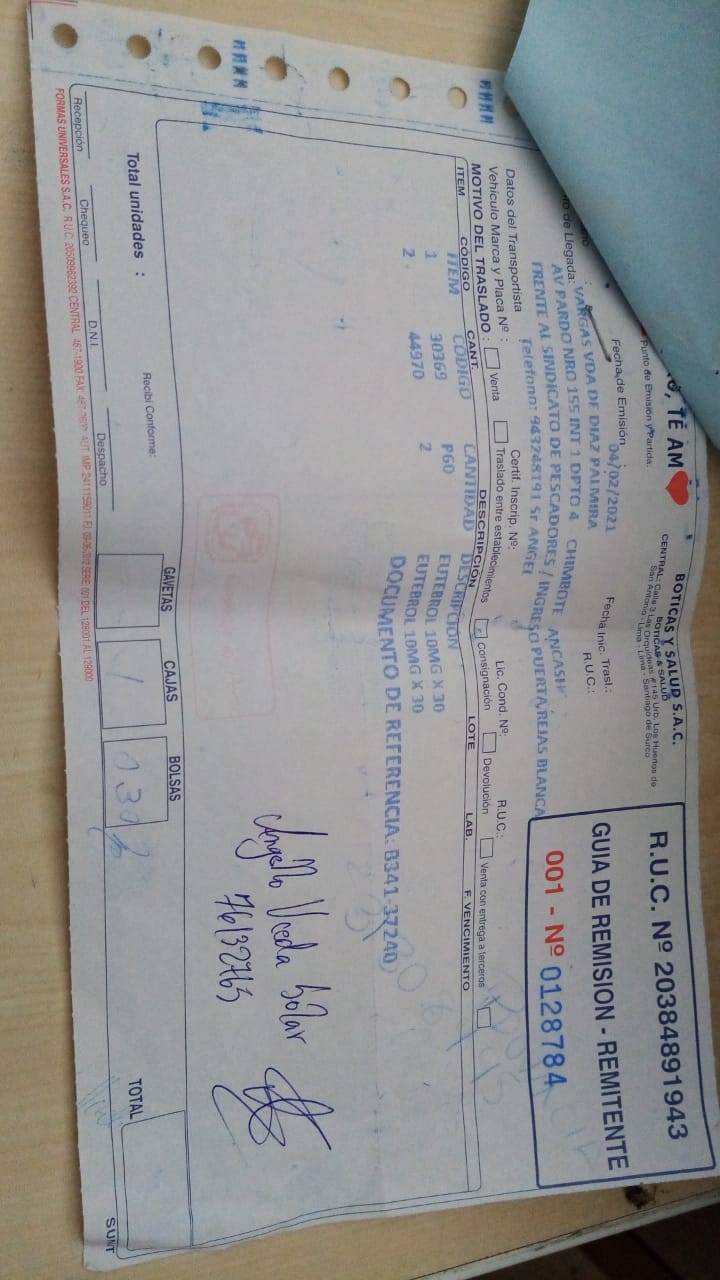 , TE AM
BOTICAS Y SALUD S.A.C.
BOTICAS & SALUD
CENTRAL: Calle 3 Las Orquídeas # 145 Urb. Los Huertos de
San Antonio - Lima - Lima - Santiago de Surco
R.U.C. Nº 20384891943
GUIA DE REMISION - REMITENTE
001 - Nº 0128784
Punto de Emisión y Partida:
Fecha de Emisión 04/02/2021 Fecha Inic. Trasl.:
: VARGAS VDA DE DIAZ PALMIRA R.U.C.:
de Llegada: AV PARDO NRO 155 INT 1 DPTO 4 CHIMBOTE ANCASH
FRENTE AL SINDICATO DE PESCADORES / INGRESO PUERTA REJAS BLANCA
Teléfono: 943248191 Sr ANGEL
Datos del Transportista Certif. Inscrip. Nº: Lic. Cond. Nº: R.U.C.:
Vehículo Marca y Placa Nº :
MOTIVO DEL TRASLADO : Venta Traslado entre establecimientos Consignación Devolución Venta con entrega a terceros
ITEM CÓDIGO CANT. DESCRIPCIÓN LOTE LAB. F. VENCIMIENTO
ITEM CODIGO CANTIDAD DESCRIPCION
1 30369 P60 EUTEBROL 10MG X 30
2 44970 2 EUTEBROL 10MG X 30
DOCUMENTO DE REFERENCIA: B341-37240
Angello Uceda Solar
76132763
Total unidades : Recibí Conforme:
GAVETAS CAJAS BOLSAS TOTAL
Recepción Chequeo D.N.I. Despacho
FORMAS UNIVERSALES S.A.C. R.U.C. 20509982392 CENTRAL 467-1900 FAX SERIE 001 DEL 126001 AL 129000
SUNT